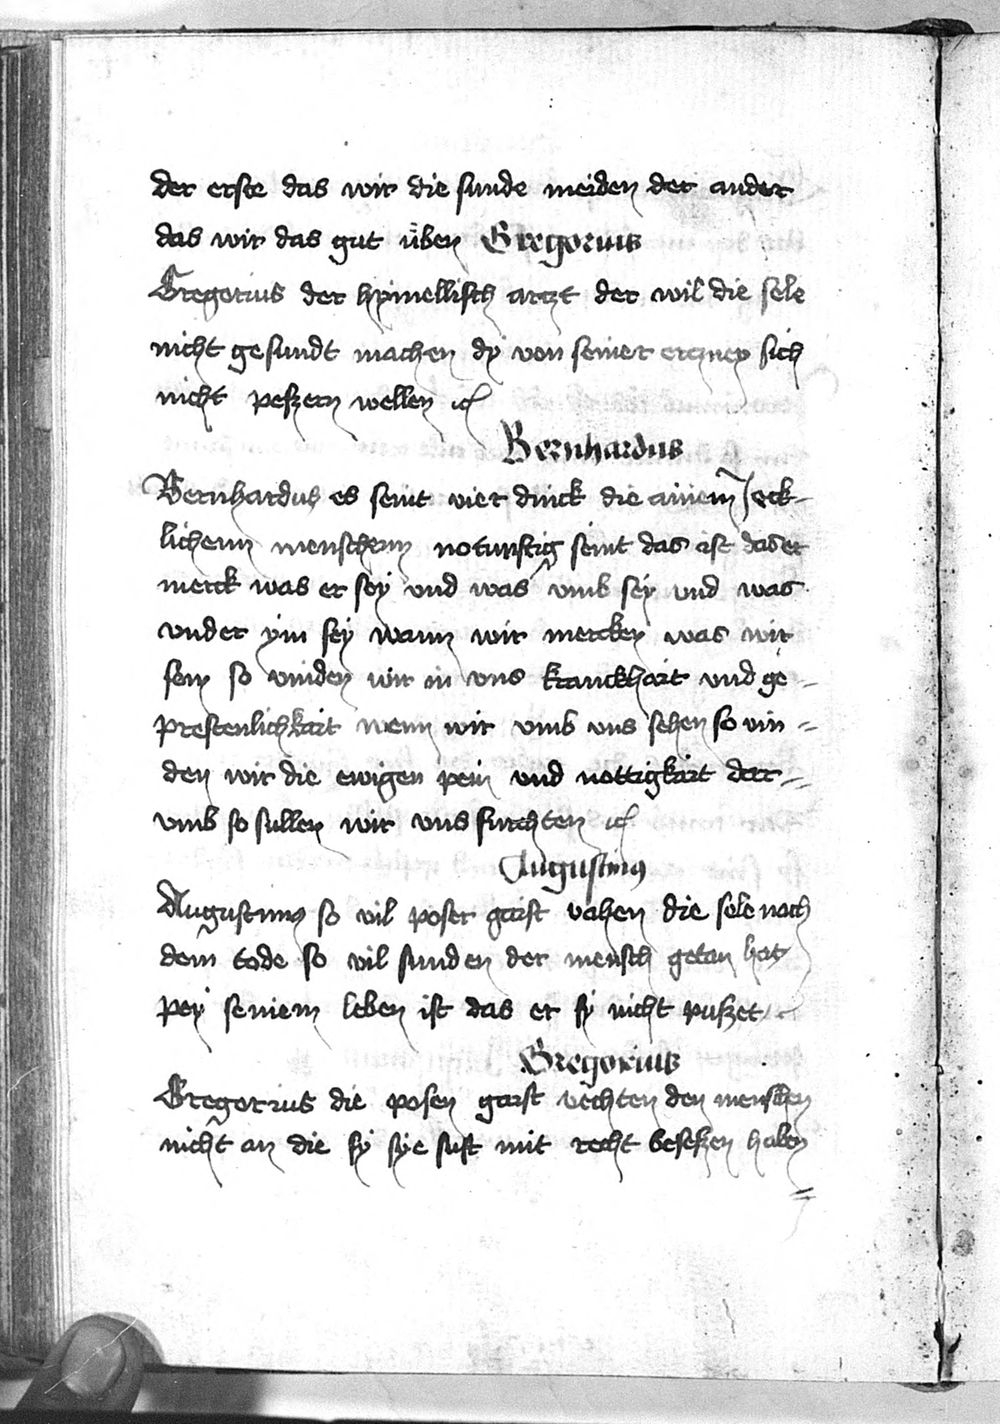 der erste das wir die sunde meiden der ander
das wir das gut üben Gregorius
Gregorius der hymellisch artzt der wil die sele
nicht gesundt machen dy von seiner erczney sich
nicht peszern wellen
Bernhardus
Bernhardus es seint vier dinck die ainem Jeck-
lichenn menschenn noturftig seint das ist das er
merck was er sey vnd was vmb sey vnd was
vnder ym sey wann wir mercken was wir
sein so vinden wir in vns kranckhait vnd ge-
prestenlichkait wenn wir vmb vns sehen so vin-
den wir die ewigen pein vnd nottigkait dar-
vmb so sullen wir vns furchten
Augustinus
Augustinus so vil poser gaist vahen die sele nach
dem tode so vil sunden der mensch getan hat
pey seinem leben ist das er sy nicht puszet
Gregorius
Gregorius die posen gaist vechten den menschen
nicht an die sy sye sust mit recht beseszen haben